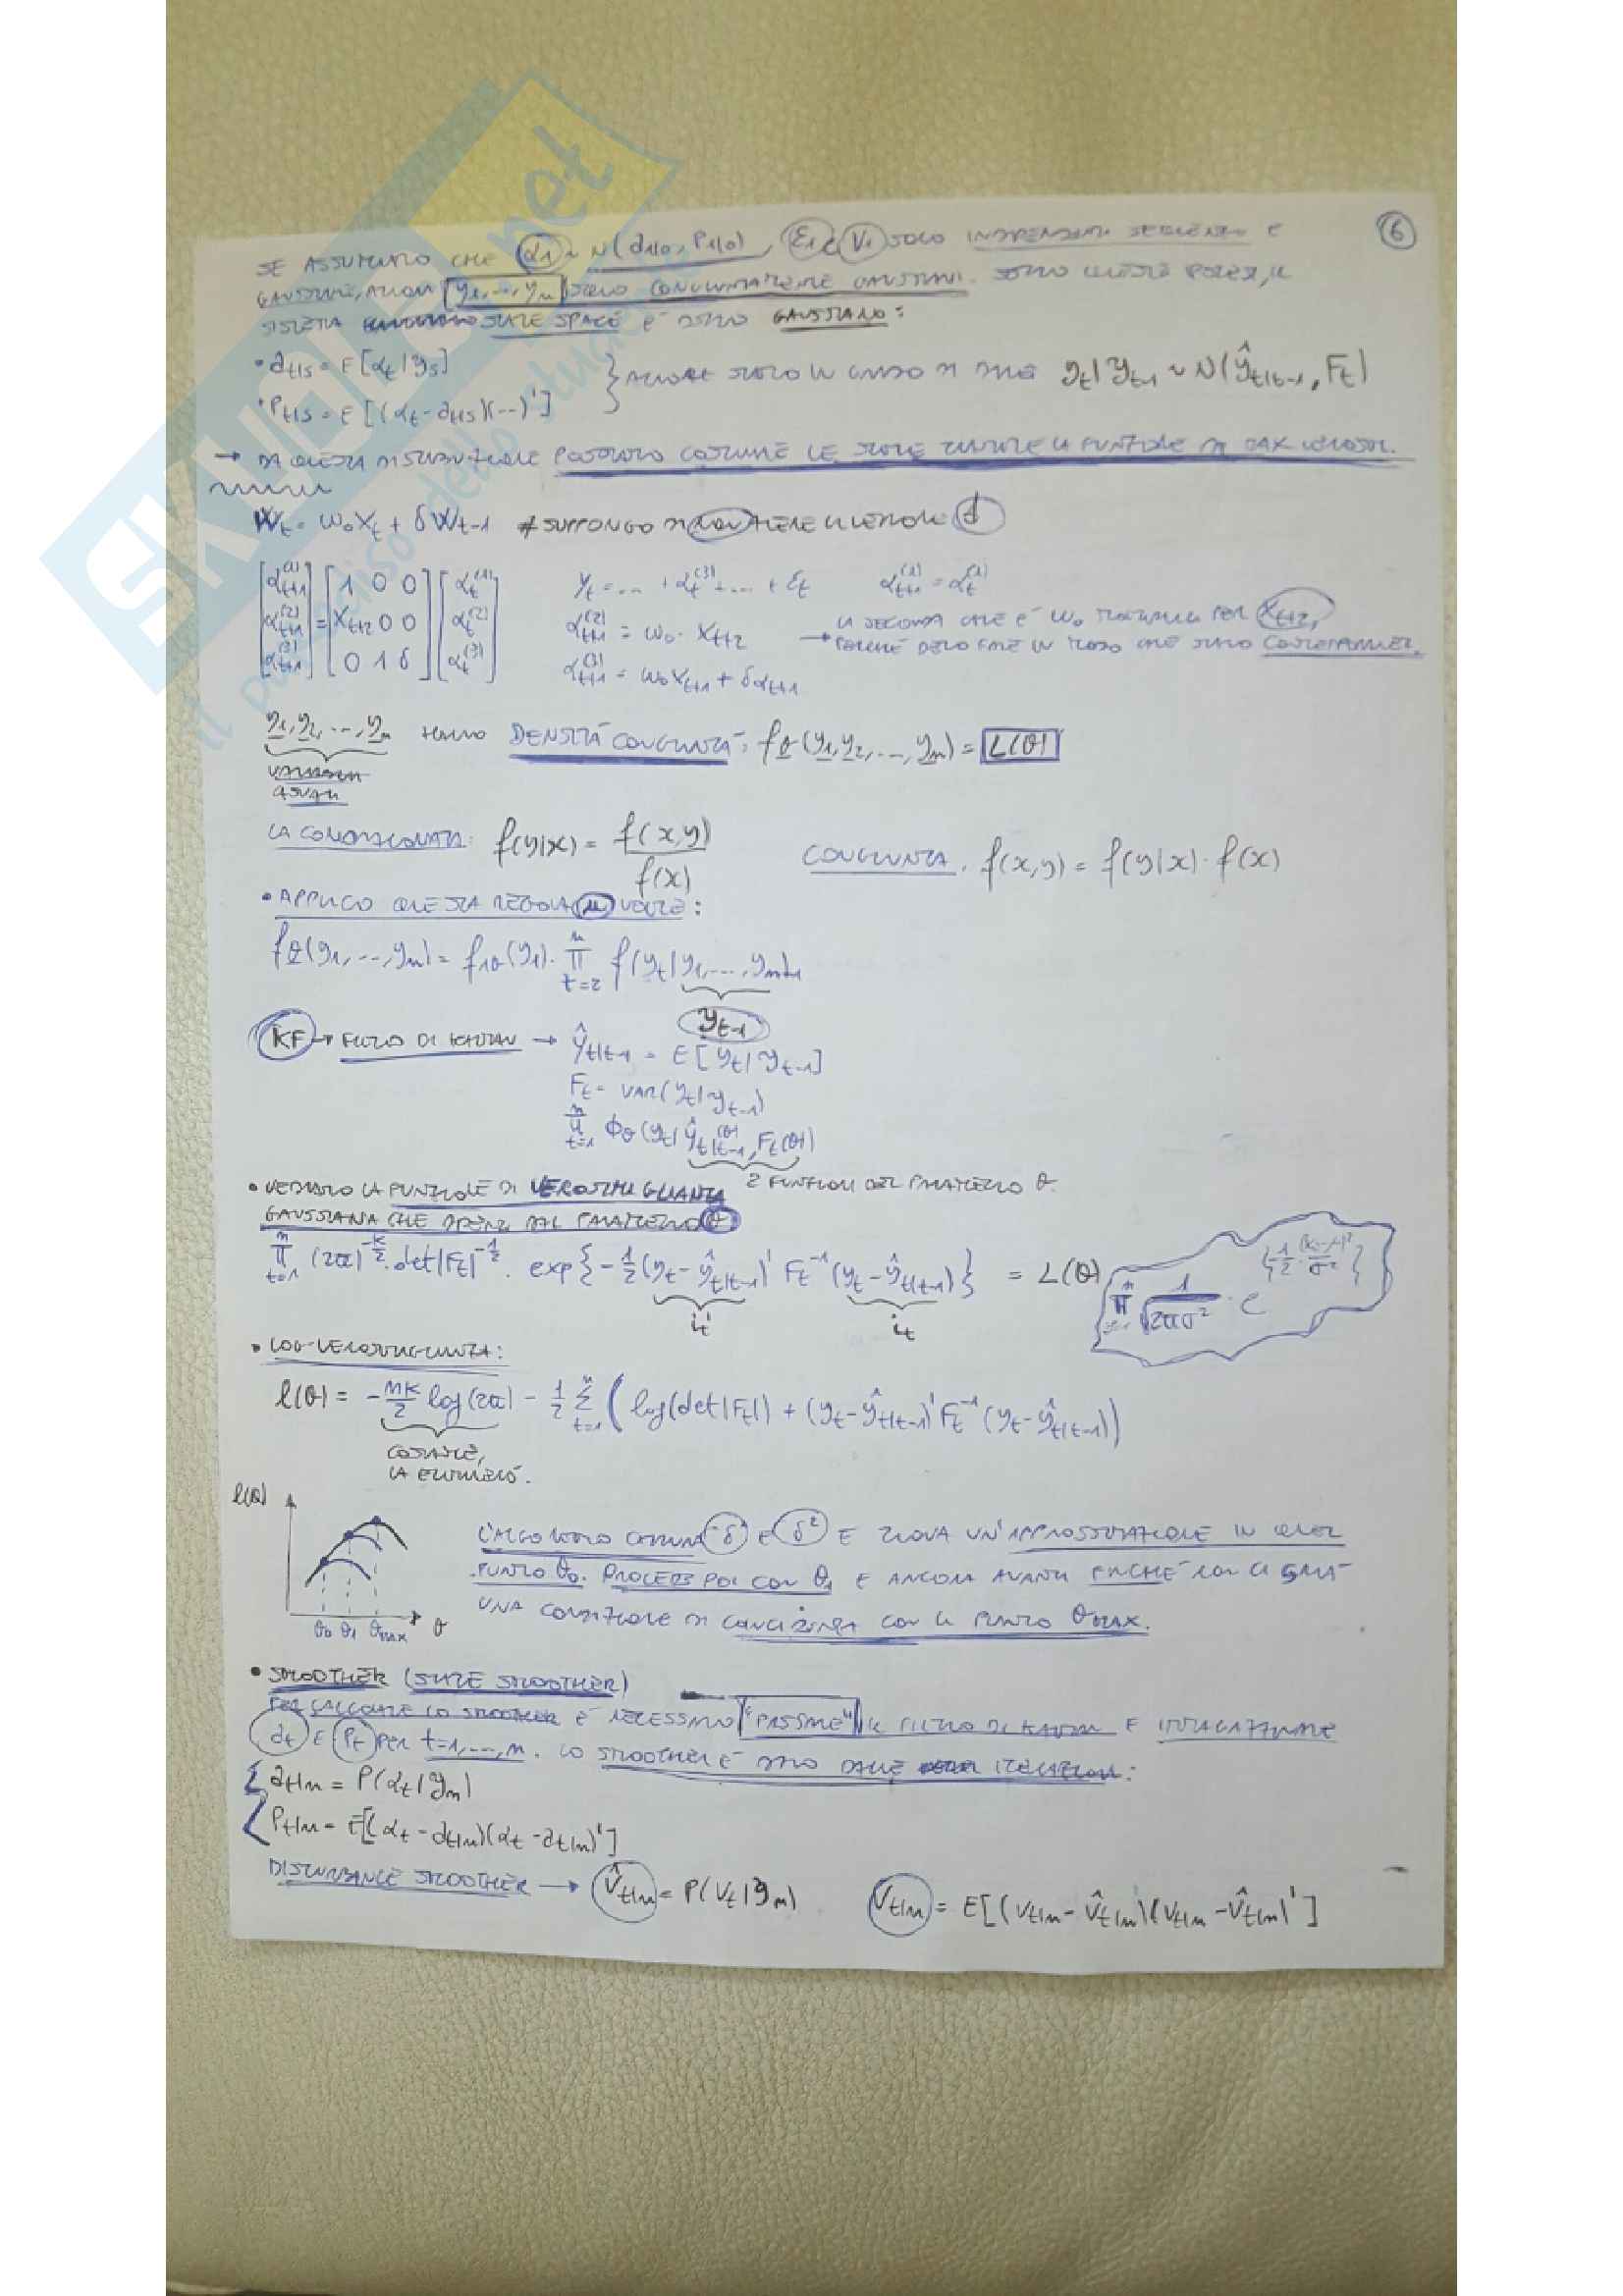 6
SE ASSUMIAMO CHE α1 ~ N(a1|0, P1|0), ε1 e V1 SONO INDIPENDENTI SERIALMENTE E
GAUSSIANE, ALLORA y1, ..., yn SONO CONGIUNTAMENTE GAUSSIANI. SOTTO QUESTE IPOTESI, IL
SISTEMA STATE SPACE È DETTO GAUSSIANO:
• at|s = E[αt|ys]
• Pt|s = E[(αt - at|s)(...)']
yt|yt-1 ~ N(ŷt|t-1, Ft)
→ DA QUESTA DISTRIBUZIONE POSSIAMO COSTRUIRE LE LA FUNZIONE DI MAX VEROSIM.
Wt = ω0Xt + δWt-1 SUPPONGO DI NON AVERE IL d
[α(1)t+1 α(2)t+1 α(3)t+1] = [1 0 0, Xt+2 0 0, 0 1 δ] [αt(1) αt(2) αt(3)]
yt = ... + αt(3) + ... + εt α(1)t+1 = αt(1)
α(2)t+1 = ω0 · Xt+2 → LA SECONDA CHE È ω0 MOLTIPLICA PER Xt+2,
PERCHÉ DEVO FARE IN MODO CHE SIANO
α(3)t+1 = ω0Xt+1 + δαt+1
y1, y2, ..., yn HANNO DENSITÀ CONGIUNTA: fθ(y1, y2, ..., yn) = L(θ)
LA CONDIZIONATA: f(y|x) = f(x,y) / f(x) CONGIUNTA: f(x,y) = f(y|x) · f(x)
• APPLICO QUESTA REGOLA n VOLTE:
fθ(y1, ..., yn) = f1θ(y1) · n Π t=2 f(yt|y1, ..., yn)-1
yt-1
KF → FILTRO DI KALMAN → ŷt|t-1 = E[yt|yt-1]
Ft = VAR(yt|yt-1)
n Π t=1 Φθ(yt|ŷ(θ)t|t-1, Ft(θ))
2 FUNZIONI DEL PARAMETRO θ.
• VEDIAMO LA FUNZIONE DI VEROSIMIGLIANZA
GAUSSIANA CHE DIPENDE DAL PARAMETRO θ
n Π t=1 (2π)^-k/2 · det|Ft|^-1/2 · exp{-1/2 (yt - ŷt|t-1)' Ft^-1 (yt - ŷt|t-1)} = L(θ)
it' it
n Π 1/√2πσ² · e {1/2 (xi-μ)²/σ²}
• LOG-VEROSIMIGLIANZA:
l(θ) = -nk/2 log(2π) - 1/2 n Σ t=1 (log(det|Ft|) + (yt - ŷt|t-1)' Ft^-1 (yt - ŷt|t-1))
COSTANTE,
LA ELIMINERÒ.
l(θ)
θ0 θ1 θMAX θ
L'ALGORITMO δ E δ² E TROVA UN'APPROSSIMAZIONE IN QUEL
PUNTO θ0. PROCEDE POI CON θ1 E ANCORA AVANTI FINCHÉ NON CI SARÀ
UNA CONDIZIONE DI CON IL PUNTO θMAX.
• SMOOTHER (STATE SMOOTHER)
PER CALCOLARE LO SMOOTHER È NECESSARIO "PASSARE" IL FILTRO DI KALMAN E IMMAGAZZINARE
at E Pt PER t=1, ..., n. LO SMOOTHER È DATO DALLE ITERAZIONI:
at|n = P(αt|yn)
Pt|n = E[(αt - at|n)(αt - at|n)']
DISTURBANCE SMOOTHER → V̂t|n = P(Vt|yn) Vt|n = E[(Vt|n - V̂t|n)(Vt|n - V̂t|n)']
SKUOLA.net
il paradiso dello studente